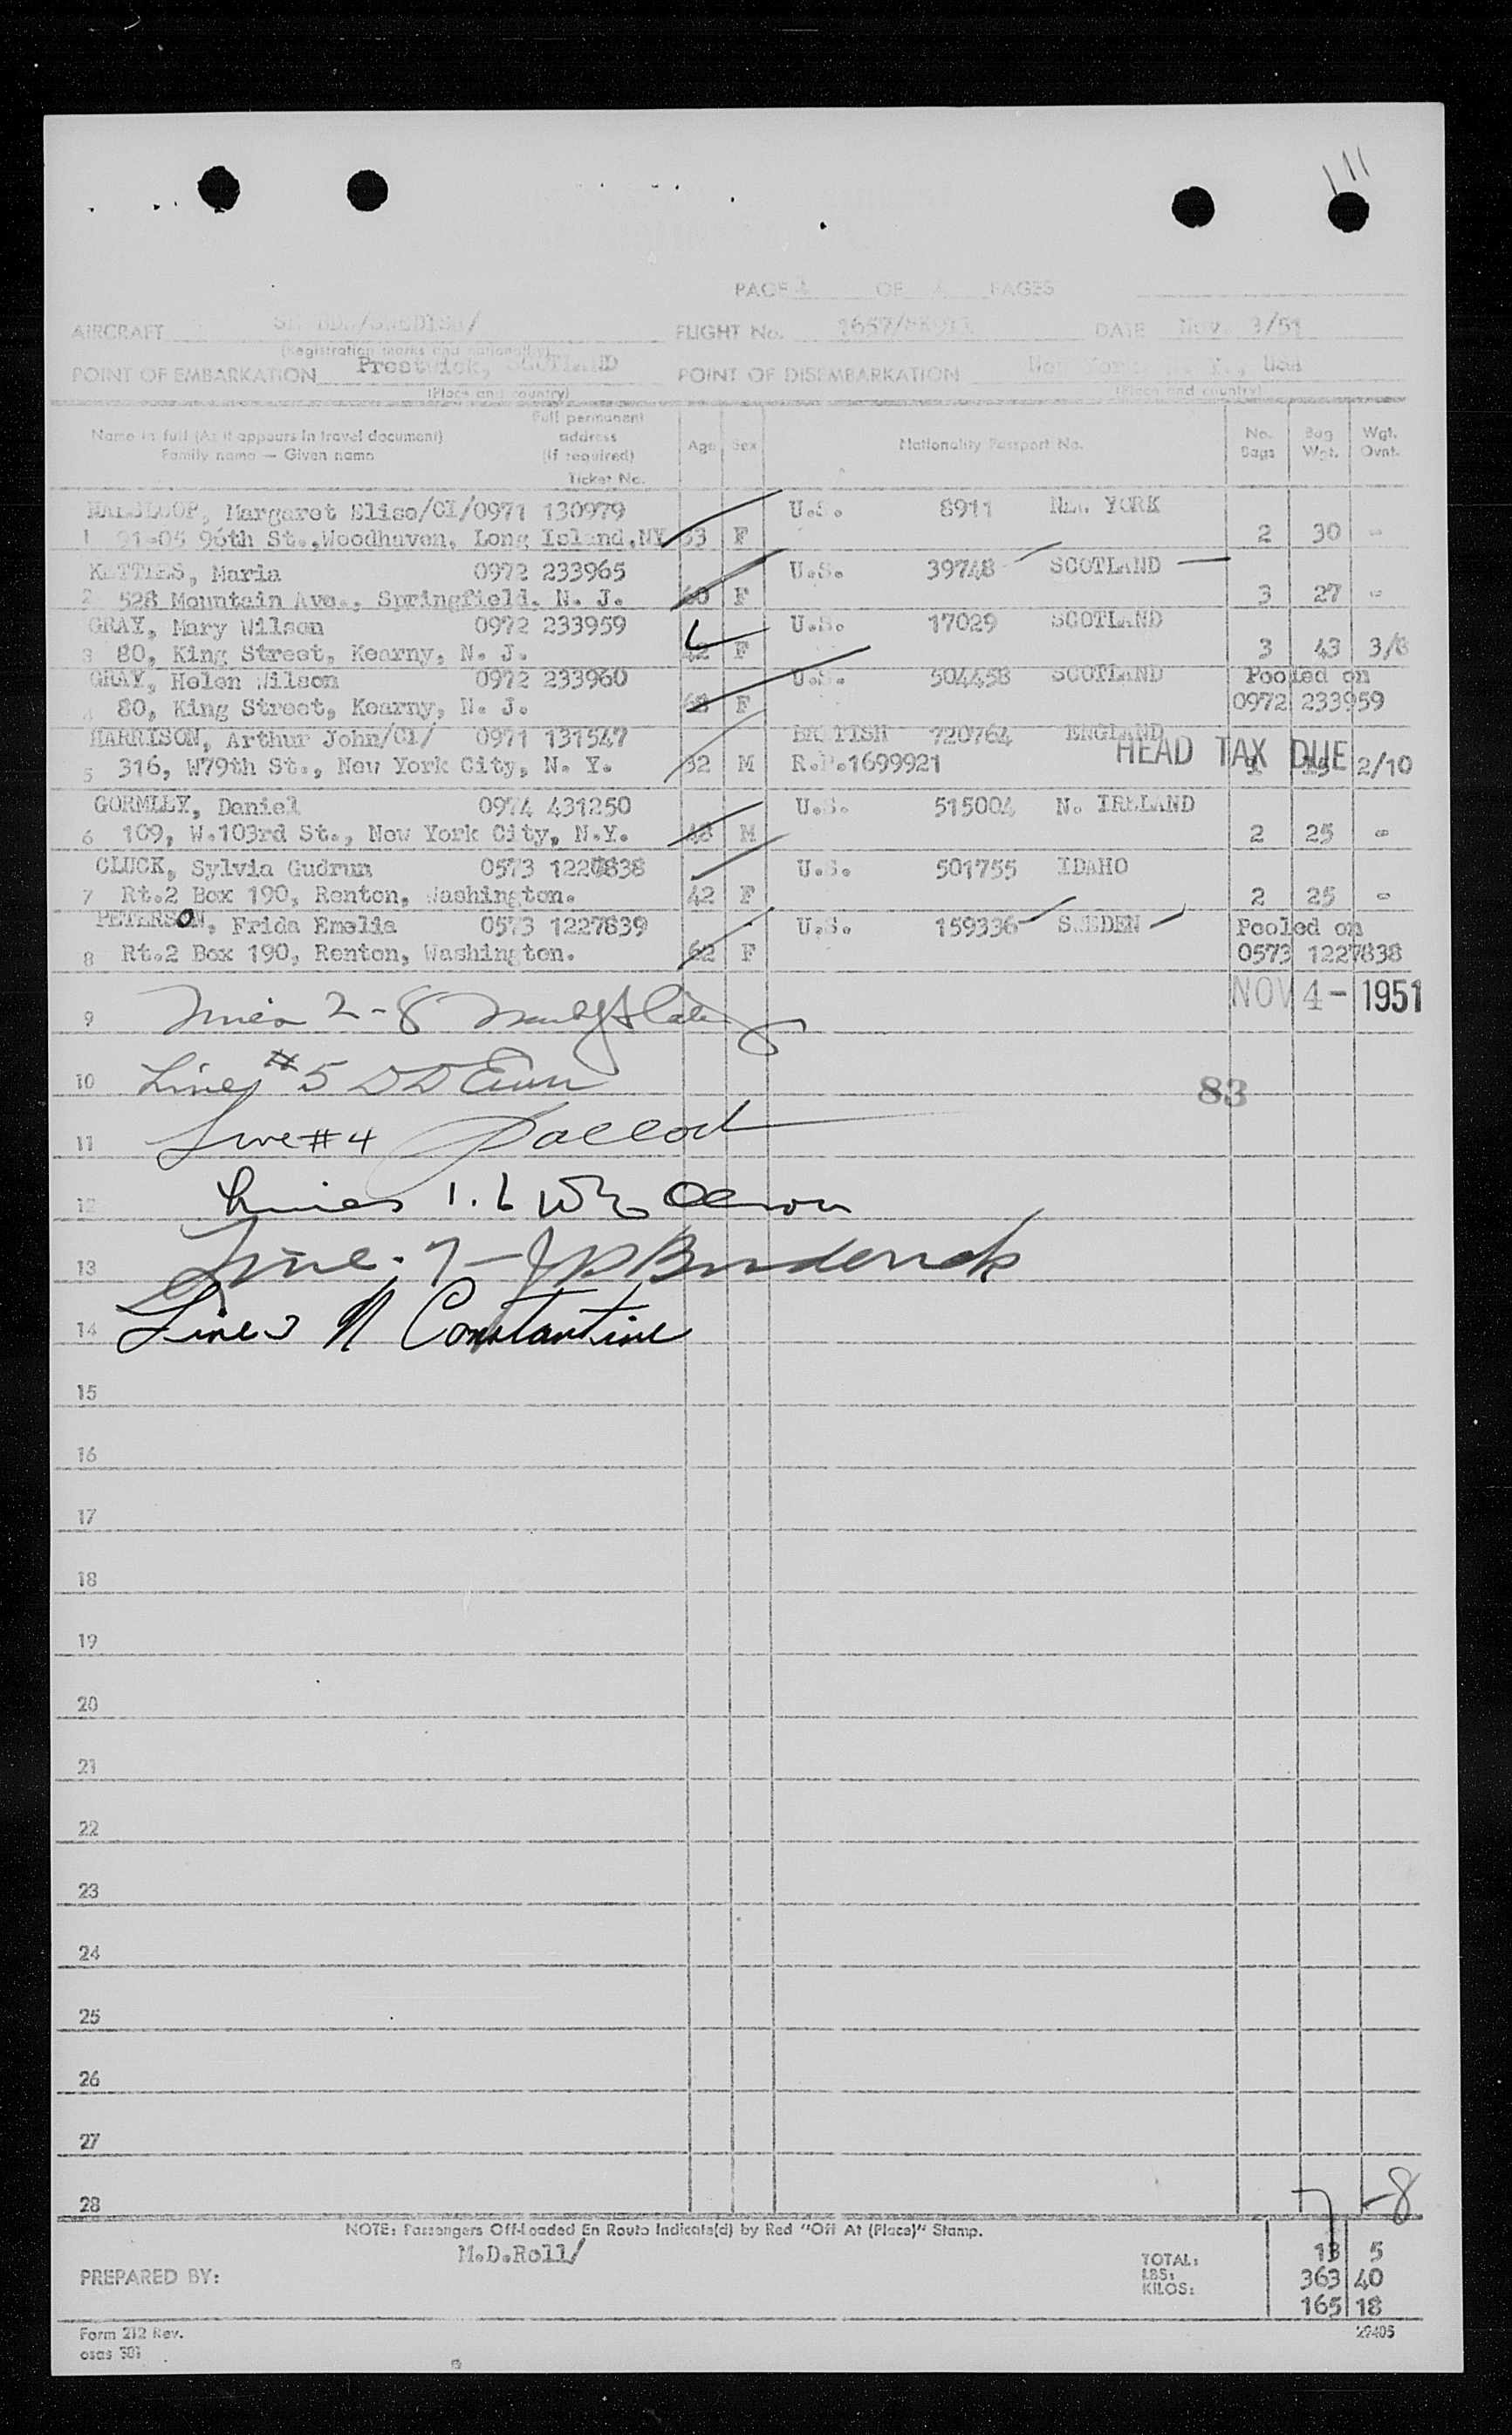 PAGE OF PAGES
AIRCRAFT FLIGHT No. DATE Nov. 3/51
(Registration marks and nationality)
POINT OF EMBARKATION Prestwick, SCOTLAND POINT OF DISEMBARKATION New York, N. Y., USA
(Place and country) (Place and country)
Name in full (As it appears in travel document) Full permanent address (If required) Age Sex Nationality Passport No. No. Bags Bag Wgt. Wgt. Ovnt.
Family name — Given name Ticket No.
Margaret Elise/CI/0971 130979 U.S. 8911 NEW YORK
1 91-05 96th St.,Woodhaven, Long Island,NY 53 F 2 30 -
KETTIES, Maria 0972 233965 U.S. 39748 SCOTLAND
2 528 Mountain Ave., Springfield, N. J. 60 F 3 27 -
GRAY, Mary Wilson 0972 233959 U.S. 17029 SCOTLAND
3 80, King Street, Kearny, N. J. 42 F 3 43 3/8
GRAY, Helen Wilson 0972 233960 U.S. 504458 SCOTLAND Pooled on
4 80, King Street, Kearny, N. J. 68 F 0972 233959
HARRISON, Arthur John/CI/ 0971 131547 BRITISH 720764 ENGLAND
HEAD TAX DUE
5 316, W79th St., New York City, N. Y. 32 M R.P.1699921 1 15 2/10
GORMLEY, Daniel 0974 431250 U.S. 515004 N. IRELAND
6 109, W.103rd St., New York City, N.Y. 48 M 2 25 -
CLUCK, Sylvia Gudrun 0573 1227838 U.S. 501755 IDAHO
7 Rt.2 Box 190, Renton, Washington. 42 F 2 25 -
PETERSON, Frida Emelia 0573 1227839 U.S. 159336 SWEDEN Pooled on
8 Rt.2 Box 190, Renton, Washington. 62 F 0573 1227838
NOV 4- 1951
9 Lines 2-8
10 Line #5 DD
83
11 Line #4
12 Lines 1.6
13 Line - 7 - JP Broderick
14 Line 3 N Constantine
15
16
17
18
19
20
21
22
23
24
25
26
27
28 -8
NOTE: Passengers Off-Loaded En Route Indicate(d) by Red "Off At (Place)" Stamp.
M.D.Roll/
PREPARED BY:
TOTAL: 13 5
LBS: 363 40
KILOS: 165 18
Form 212 Rev. 29405
osas 301